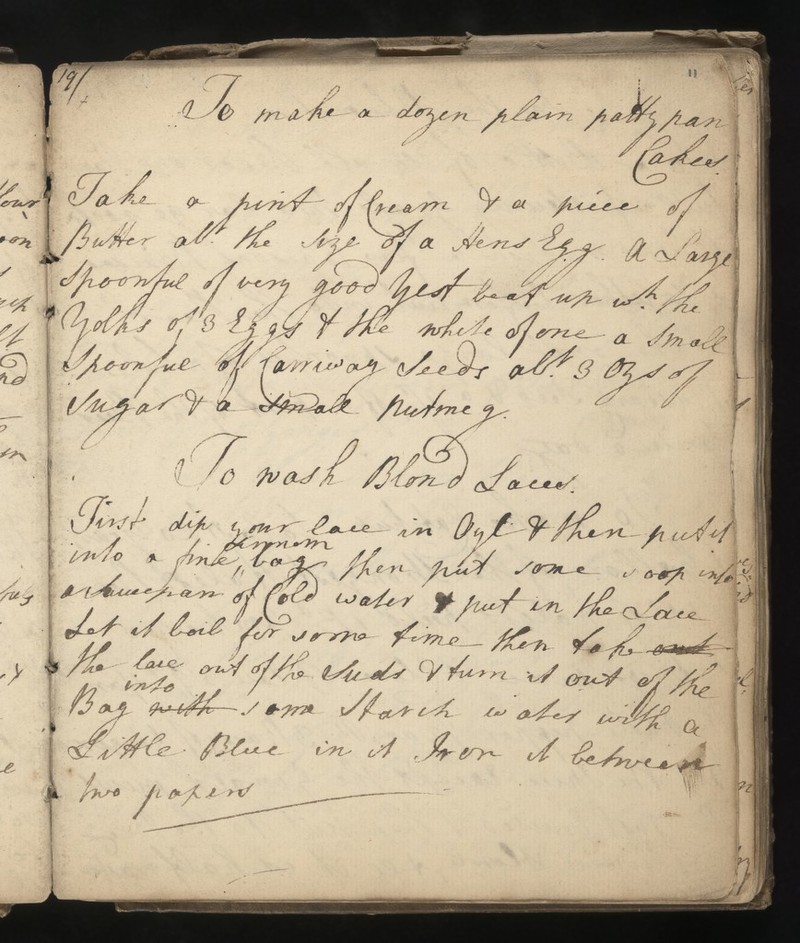 19/
11
To make a dozen plain pattypan
Cakes.
Take a pint of Cream & a piece of
Butter abt. the size of a Hens Egg. A Large
spoonful of very good Yest beat up wth. the
Yolks of 3 Eggs & the white of one a Small
Spoonful of Carriway Seeds abt. 3 Ozs of
sugar & a small Nutmeg.
To wash Blond Laces.
First dip your lace in Oyl & then put it
into a fine linnem bag then put some soop into
a saucepan of Cold water & put in the Lace
Let it boil for some time then take out
the lace out of the Suds & turn it out of the
Bag with into some Starch water with a
Little Blue in it Iron it between
two papers